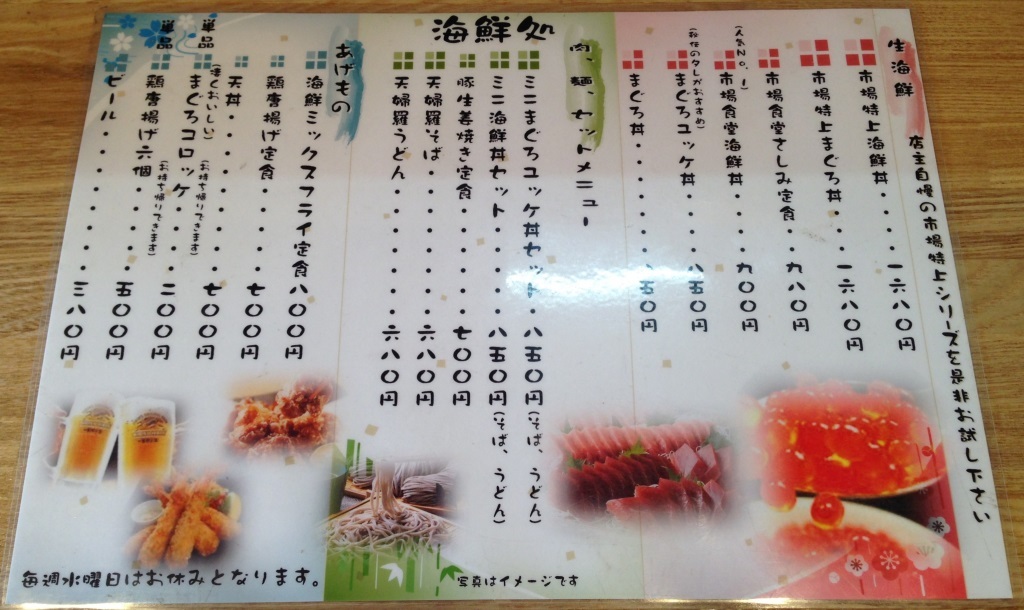 海鮮処
生海鮮
店主自慢の市場特上シリーズを是非お試し下さい
市場特上海鮮丼・・・一六八〇円
市場特上まぐろ丼・・一六八〇円
市場食堂さしみ定食・・九八〇円
(人気No.1)
市場食堂海鮮丼・・・・九〇〇円
(秘伝のタレがおすすめ)
まぐろユッケ丼・・・・八五〇円
まぐろ丼・・・・・・五〇円
肉、麺、セットメニュー
ミニまぐろユッケ丼セット・八五〇円(そば、うどん)
ミニ海鮮丼セット・・・・八五〇円(そば、うどん)
豚生姜焼き定食・・・・・七〇〇円
天婦羅そば・・・・・・・六八〇円
天婦羅うどん・・・・・・六八〇円
あげもの
海鮮ミックスフライ定食八〇〇円
鶏唐揚げ定食・・・・・七〇〇円
天丼・・・・・・・・・七〇〇円
単品
(凄くおいしい)
まぐろコロッケ・・・・二〇〇円
(お持ち帰りできます)
単品
鶏唐揚げ六個・・・・・五〇〇円
(お持ち帰りできます)
ビール・・・・・・・・三八〇円
毎週水曜日はお休みとなります。
写真はイメージです